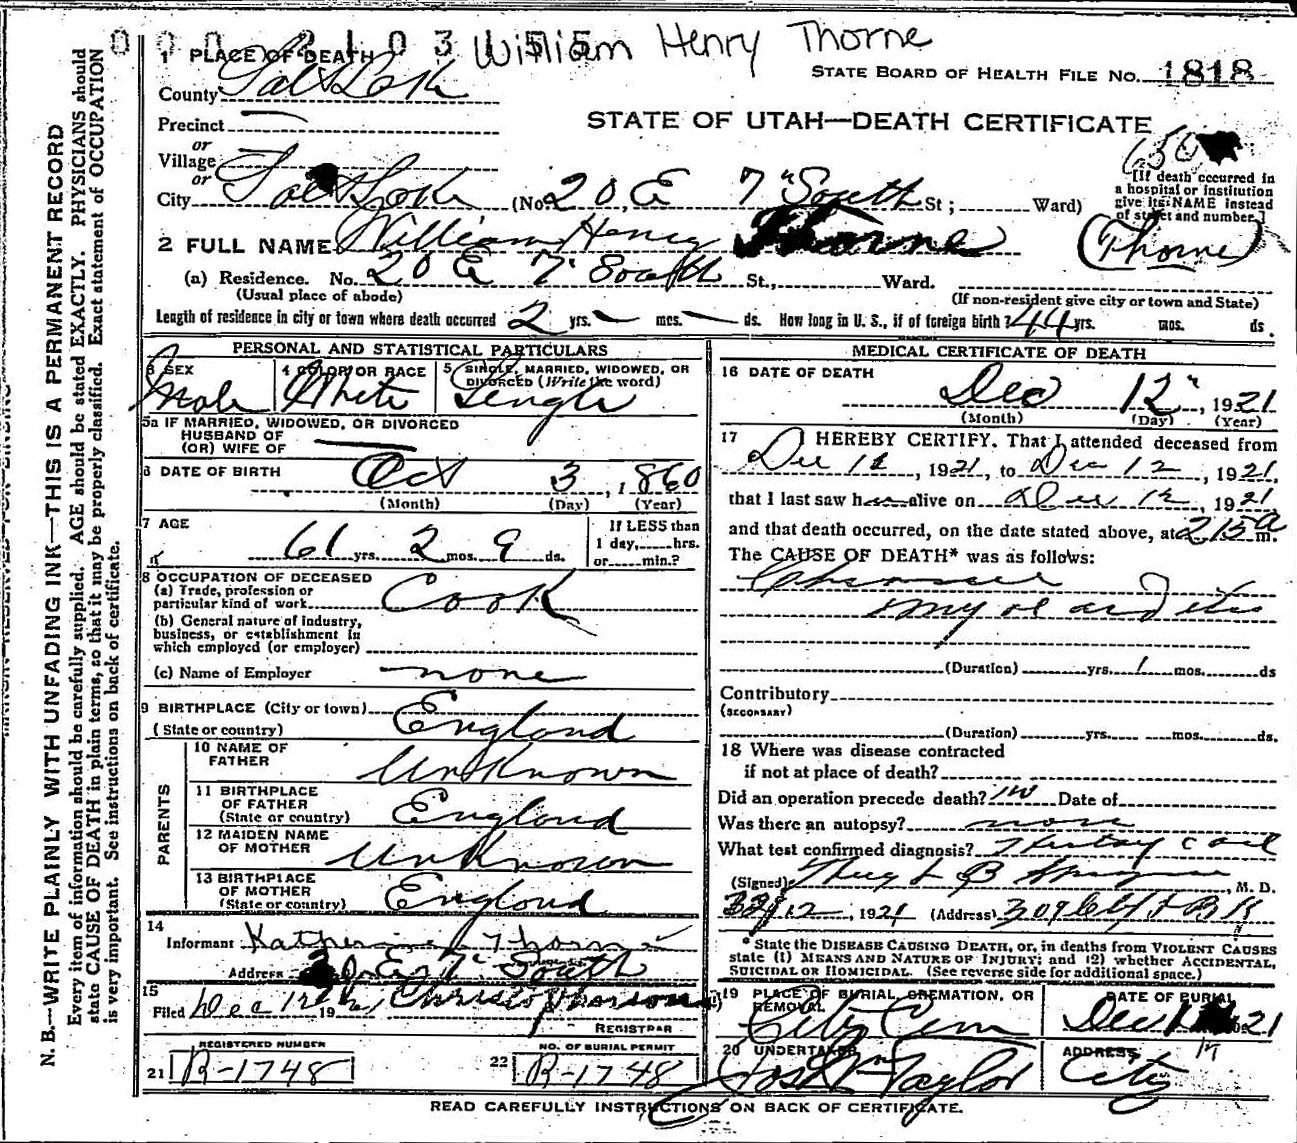 William Henry Thorne
1 PLACE OF DEATH
STATE BOARD OF HEALTH FILE No. 1818
County Salt Lake
Precinct
STATE OF UTAH—DEATH CERTIFICATE
or
Village
or
City Salt Lake (No. 20 E 7" South St; Ward)
[If death occurred in
a hospital or institution
give its NAME instead
of street and number.]
2 FULL NAME William Henry Thorne (Thorne)
(a) Residence. No. 20 E 7" South St., Ward.
(Usual place of abode) (If non-resident give city or town and State)
Length of residence in city or town where death occurred 2 yrs. — mos. — ds. How long in U. S., if of foreign birth? 44 yrs. mos. ds.
PERSONAL AND STATISTICAL PARTICULARS
3 SEX Male
4 COLOR OR RACE White
5 SINGLE, MARRIED, WIDOWED, OR
DIVORCED (Write the word) Single
5a IF MARRIED, WIDOWED, OR DIVORCED
HUSBAND OF
(OR) WIFE OF —
6 DATE OF BIRTH Oct 3, 1860
(Month) (Day) (Year)
7 AGE 61 yrs. 2 mos. 9 ds.
If LESS than
1 day, hrs.
or min.?
8 OCCUPATION OF DECEASED
(a) Trade, profession or
particular kind of work Cook
(b) General nature of industry,
business, or establishment in
which employed (or employer)
(c) Name of Employer none
9 BIRTHPLACE (City or town) England
(State or country)
PARENTS
10 NAME OF
FATHER Unknown
11 BIRTHPLACE
OF FATHER
(State or country) England
12 MAIDEN NAME
OF MOTHER Unknown
13 BIRTHPLACE
OF MOTHER
(State or country) England
14
Informant Katherine Thorne
Address E 7" South
15
Filed Dec 12 192
REGISTRAR
REGISTERED NUMBER
21 R-1748
NO. OF BURIAL PERMIT
22 R-1748
MEDICAL CERTIFICATE OF DEATH
16 DATE OF DEATH Dec 12", 1921
(Month) (Day) (Year)
17 I HEREBY CERTIFY, That I attended deceased from
Dec 12, 1921, to Dec 12, 1921,
that I last saw h alive on Dec 12, 1921
and that death occurred, on the date stated above, at 2 15 a m.
The CAUSE OF DEATH* was as follows:
Chronic
myocarditis
(Duration) yrs. 1 mos. ds
Contributory
(SECONDARY)
(Duration) yrs. mos. ds.
18 Where was disease contracted
if not at place of death?
Did an operation precede death? no Date of
Was there an autopsy? none
What test confirmed diagnosis?
(Signed) B , M. D.
12, 1921 (Address)
* State the DISEASE CAUSING DEATH, or, in deaths from VIOLENT CAUSES
state (1) MEANS AND NATURE OF INJURY; and (2) whether ACCIDENTAL,
SUICIDAL OR HOMICIDAL. (See reverse side for additional space.)
19 PLACE OF BURIAL, CREMATION, OR
REMOVAL City Cem
DATE OF BURIAL
Dec 1921
20 UNDERTAKER Jos Wm Taylor
ADDRESS City
READ CAREFULLY INSTRUCTIONS ON BACK OF CERTIFICATE.
N. B.—WRITE PLAINLY WITH UNFADING INK—THIS IS A PERMANENT RECORD
Every item of information should be carefully supplied. AGE should be stated EXACTLY. PHYSICIANS should
state CAUSE OF DEATH in plain terms, so that it may be properly classified. Exact statement of OCCUPATION
is very important. See instructions on back of certificate.